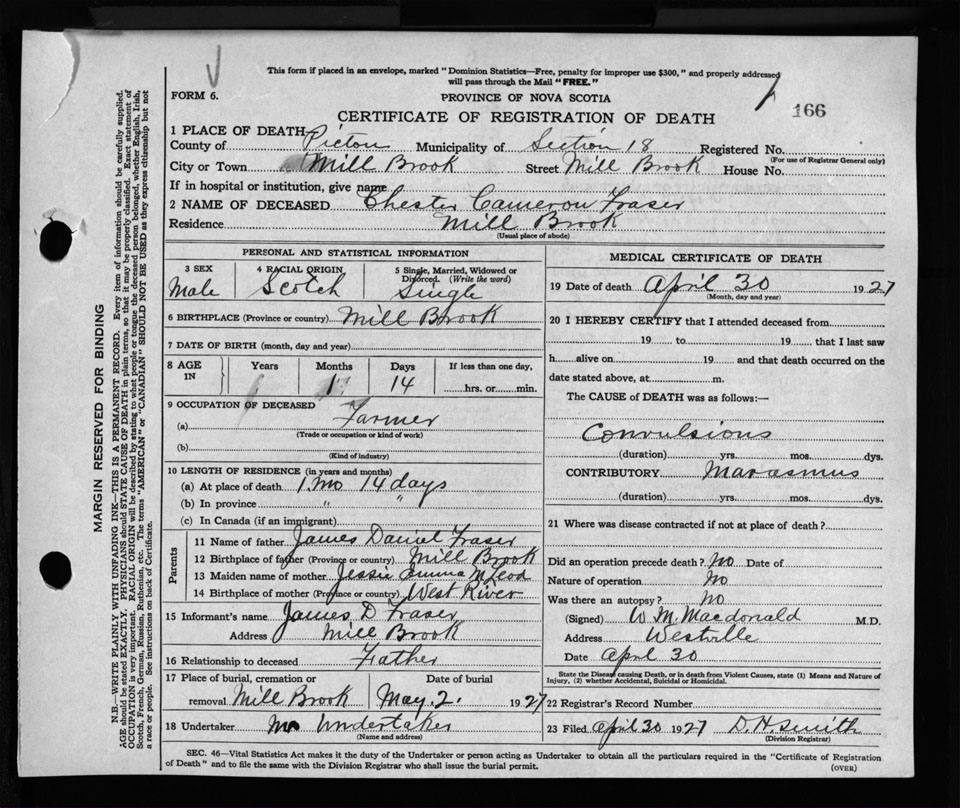 This form if placed in an envelope, marked "Dominion Statistics—Free, penalty for improper use $300," and properly addressed
will pass through the Mail "FREE."
FORM 6.
PROVINCE OF NOVA SCOTIA
166
CERTIFICATE OF REGISTRATION OF DEATH
1 PLACE OF DEATH
County of Pictou Municipality of Section 18 Registered No.
(For use of Registrar General only)
City or Town Mill Brook Street Mill Brook House No.
If in hospital or institution, give name
2 NAME OF DECEASED Chester Cameron Fraser
Residence Mill Brook
(Usual place of abode)
PERSONAL AND STATISTICAL INFORMATION
3 SEX 4 RACIAL ORIGIN 5 Single, Married, Widowed or
Divorced. (Write the word)
Male Scotch Single
6 BIRTHPLACE (Province or country) Mill Brook
7 DATE OF BIRTH (month, day and year)
8 AGE IN Years Months Days If less than one day,
1 14 hrs. or min.
9 OCCUPATION OF DECEASED
(a) Farmer
(Trade or occupation or kind of work)
(b)
(Kind of industry)
10 LENGTH OF RESIDENCE (in years and months)
(a) At place of death 1 mo 14 days
(b) In province " "
(c) In Canada (if an immigrant)
Parents
11 Name of father James Daniel Fraser
12 Birthplace of father (Province or country) Mill Brook
13 Maiden name of mother Jessie Emma McLeod
14 Birthplace of mother (Province or country) West River
15 Informant's name James D Fraser
Address Mill Brook
16 Relationship to deceased Father
17 Place of burial, cremation or Date of burial
removal Mill Brook May 2. 1927
18 Undertaker No Undertaker
(Name and address)
MEDICAL CERTIFICATE OF DEATH
19 Date of death April 30 1927
(Month, day and year)
20 I HEREBY CERTIFY that I attended deceased from
19 to 19 that I last saw
h alive on 19 and that death occurred on the
date stated above, at m.
The CAUSE of DEATH was as follows:—
Convulsions
(duration) yrs. mos. dys.
CONTRIBUTORY Marasmus
(duration) yrs. mos. dys.
21 Where was disease contracted if not at place of death?
Did an operation precede death? No Date of
Nature of operation No
Was there an autopsy? No
(Signed) W. M. Macdonald M.D.
Address Westville
Date April 30
State the Disease causing Death, or in death from Violent Causes, state (1) Means and Nature of
Injury, (2) whether Accidental, Suicidal or Homicidal.
22 Registrar's Record Number
23 Filed April 30 1927 D. H. Smith
(Division Registrar)
SEC. 46—Vital Statistics Act makes it the duty of the Undertaker or person acting as Undertaker to obtain all the particulars required in the "Certificate of Registration
of Death" and to file the same with the Division Registrar who shall issue the burial permit.
(OVER)
MARGIN RESERVED FOR BINDING
N.B.—WRITE PLAINLY WITH UNFADING INK—THIS IS A PERMANENT RECORD. Every item of information should be carefully supplied.
AGE should be stated EXACTLY. PHYSICIANS should STATE CAUSE OF DEATH in plain terms, so that it may be properly classified. Exact statement of
OCCUPATION is very important. RACIAL ORIGIN will be described by stating to what people or tongue the deceased person belonged, whether English, Irish,
Scotch, French, German, Russian, Ruthenian, etc. The terms "AMERICAN" or "CANADIAN" SHOULD NOT BE USED as they express citizenship but not
a race or people. See instructions on back of Certificate.